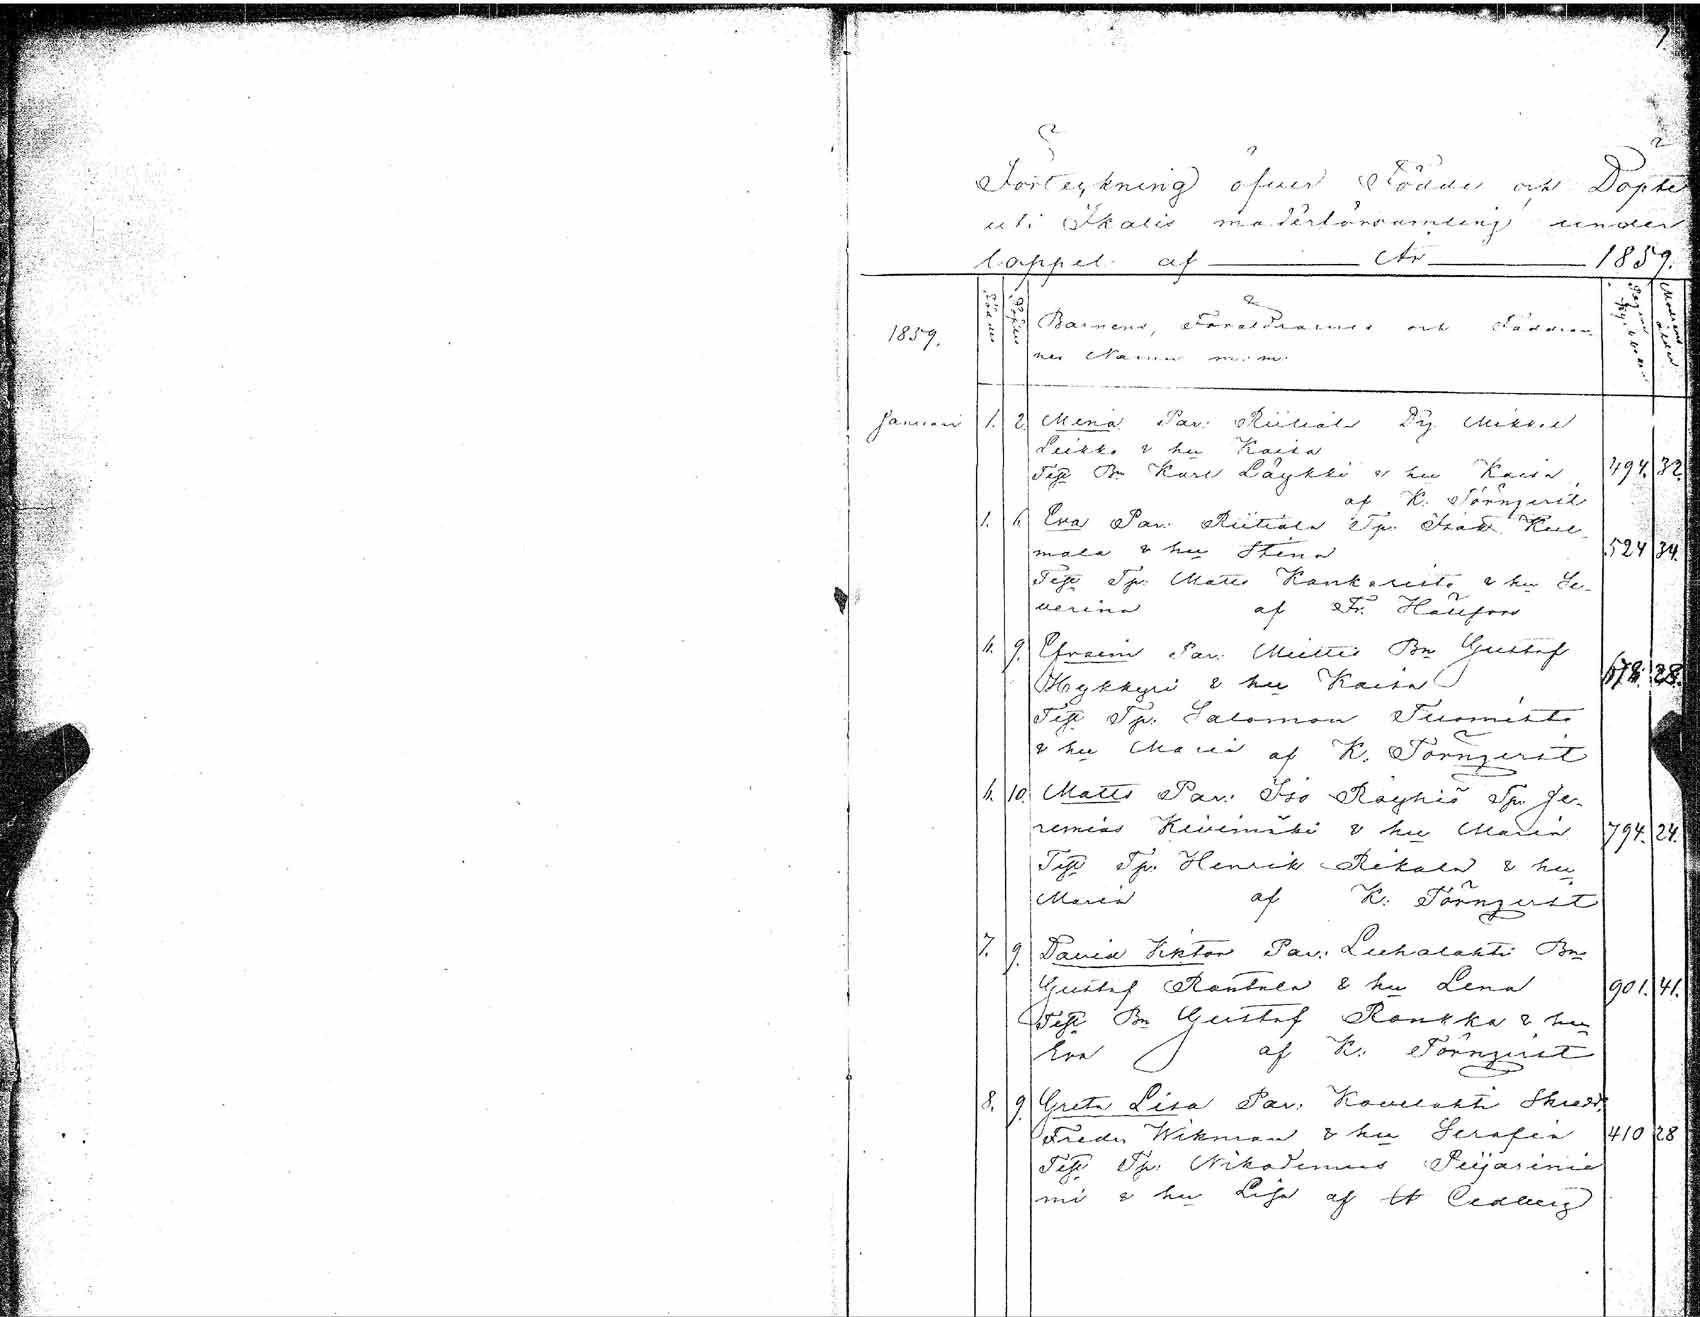 1
Förteckning öfver Födde och Döpte
uti Ikalis moderförsamling under
loppet af År 1859.
1859. Födde Döpte Barnens, Föräldrarnes och Faddrar-
nes Namn m: m: Moderns ålder
Januari 1. 2. Mina Par: Riitiala Dg Mikkel
Leikko & hu Kaisa
Test Bn Karl Löykki & hu Kaisa 494. 32.
af K: Törnqvist
1. 6. Eva Par: Riitiala Tp: Isak Kul-
mala & hu Stina 524 34.
Test Tp: Matts Kankaristo & hu Se-
verina af Fr. Hällfors
6. 9. Efraim Par: Miettis Bn Gustaf
Hykkyri & hu Kaisa 678. 28.
Test Tp: Salomon Tuomisto
& hu Maria af K. Törnqvist
6. 10. Matts Par: Iso Röyhiö Tp: Je-
remias Kivimäki & hu Maria 794. 24.
Test Tp: Henrik Rikala & hu
Maria af K: Törnqvist
7. 9. David Viktor Par: Luhalahti Bn
Gustaf Rantala & hu Lena 901. 41.
Test Bn Gustaf Rankka & hu
Eva af K: Törnqvist
8. 9. Greta Lisa Par: Kovelahti Skredd.
Fredr. Wikman & hu Serafia 410 28
Test Tp: Nikodemus Pujarinie
mi & hu Lisa af Cedberg